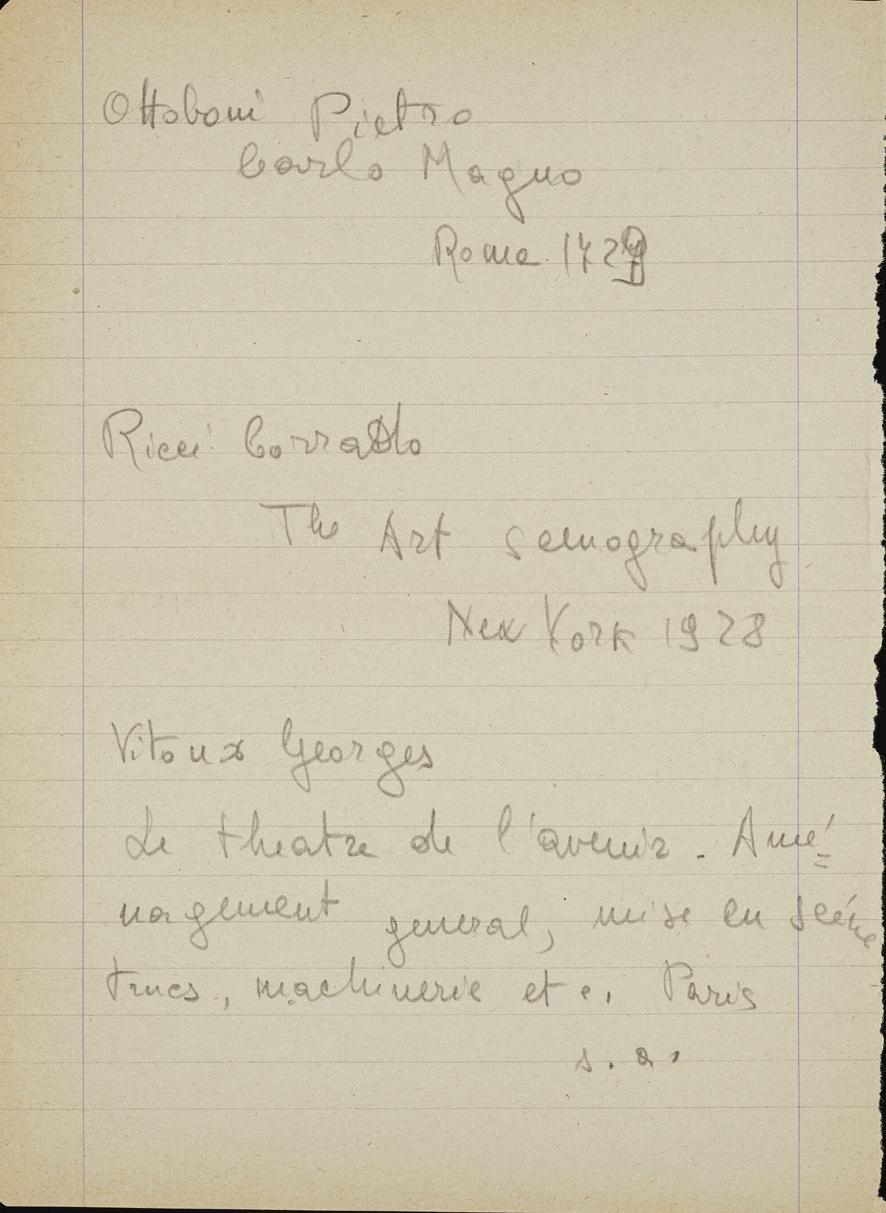 Ottoboni Pietro
Carlo Magno
Roma 1729
Ricci Corrado
The Art scenography
New York 1928
Vitoux Georges
Le theatre de l'avenir. Amé=
nagement general, mise en scéne
trucs, machinerie etc, Paris
s.a.